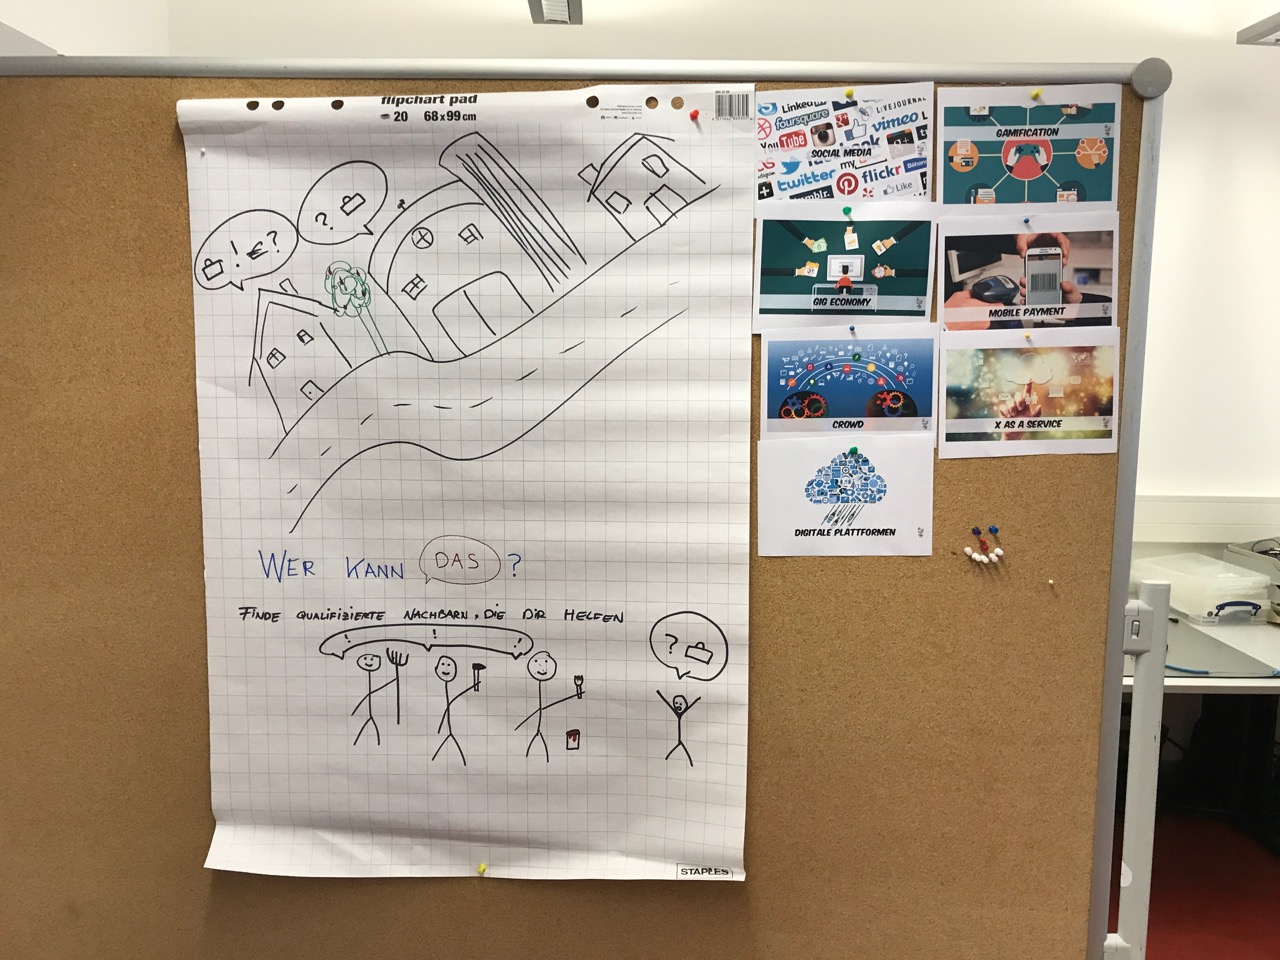 flipchart pad
20 68 x 99 cm
?
! €?
WER KANN DAS ?
FINDE QUALIFIZIERTE NACHBARN, DIE DIR HELFEN
! ! !
?
STAPLES
LinkedIn
foursquare
LIVEJOURNAL
YouTube
vimeo
SOCIAL MEDIA
twitter
my
flickr
Behan
tumblr.
Like
GAMIFICATION
GIG ECONOMY
MOBILE PAYMENT
CROWD
X AS A SERVICE
DIGITALE PLATTFORMEN